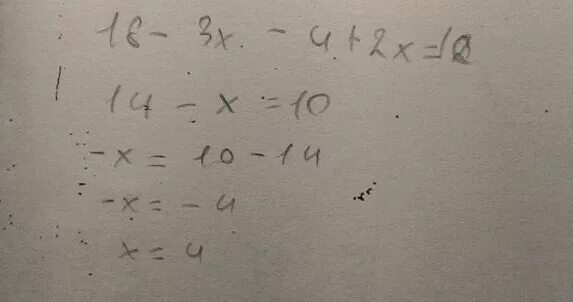 18 - 3x - 4 + 2x = 10
14 - x = 10
-x = 10 - 14
-x = - 4
x = 4